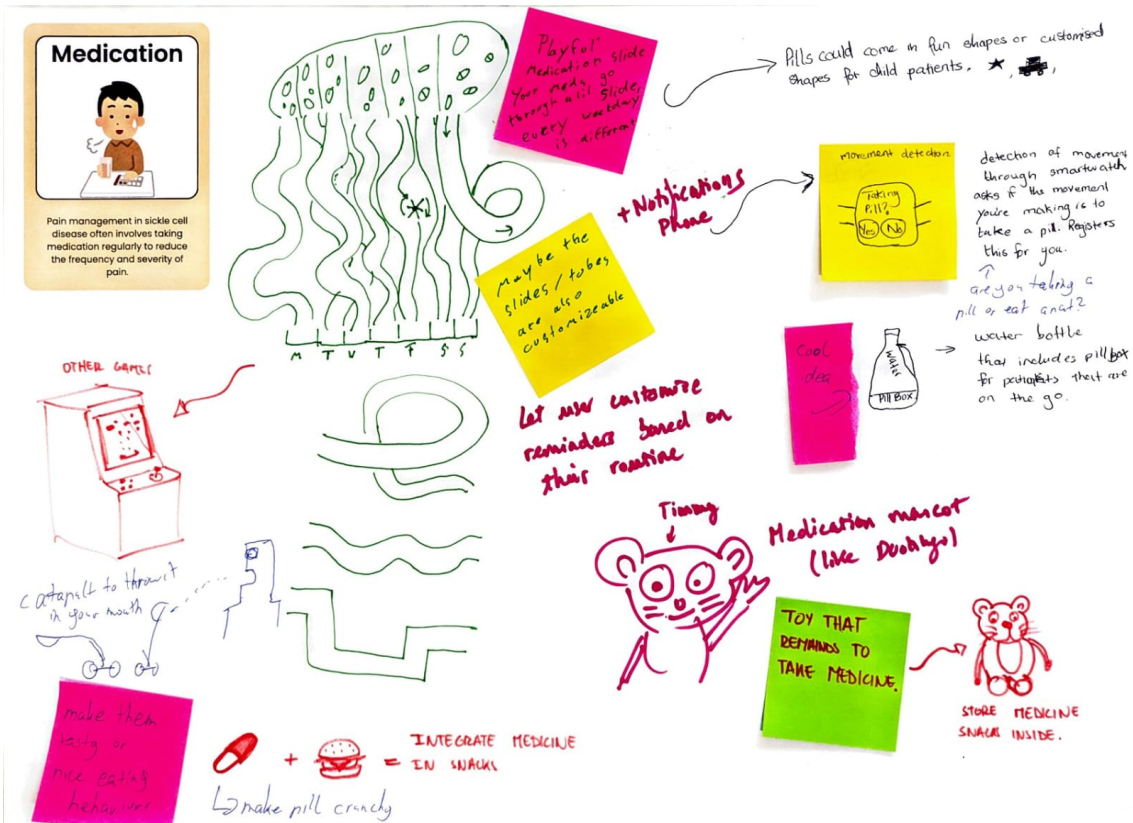 Medication
Pain management in sickle cell
disease often involves taking
medication regularly to reduce
the frequency and severity of
pain.
Playful
Medication slide
Your meds go
through a lil slide,
every weekday
is different
Pills could come in fun shapes or customised
shapes for child patients.
+ Notifications
Phone
movement detection
Taking
Pill?
Yes No
detection of movement
through smartwatch
asks if the movement
you're making is to
take a pill. Registers
this for you.
are you taking a
pill or eat a nut?
Maybe the
slides/tubes
are also
customizeable
M T W T F S S
cool
idea
water
Pill Box
water bottle
that includes pill box
for patients that are
on the go.
OTHER GAMES
Let user customize
reminders based on
their routine
catapult to throw it
in your mouth
Timmy
Medication mascot
(like Duolingo)
TOY THAT
REMINDS TO
TAKE MEDICINE.
STORE MEDICINE
SNACKS INSIDE.
make them
tasty or
nice eating
behaviors
+ = INTEGRATE MEDICINE
IN SNACKS
make pill crunchy